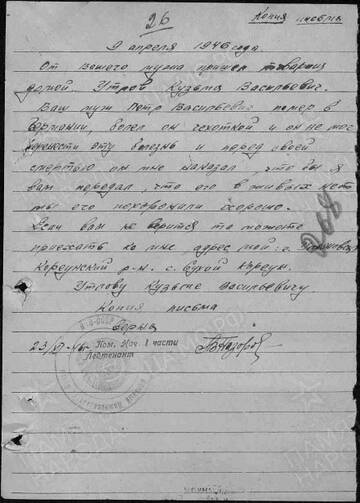 26
Копия письма
9 апреля 1946 года
От Вашего мужа пришел товарищ
домой. Утлов Кузьма Васильевич.
Ваш муж Петр Васильевич помер в
Германии, болел он чехоткой и он не мог
перенести эту болезнь и перед своей
смертью он мне наказал, что бы я
вам передал, что его в живых нету
мы его похоронили хорошо.
Если вам не верится то можете
приехать ко мне адрес мой:
р-н. с. Сухой
Утлову Кузьме Васильевичу
Копия письма
верна
Пом. Нач. 1 части
23/VI-46г.
Лейтенант
268